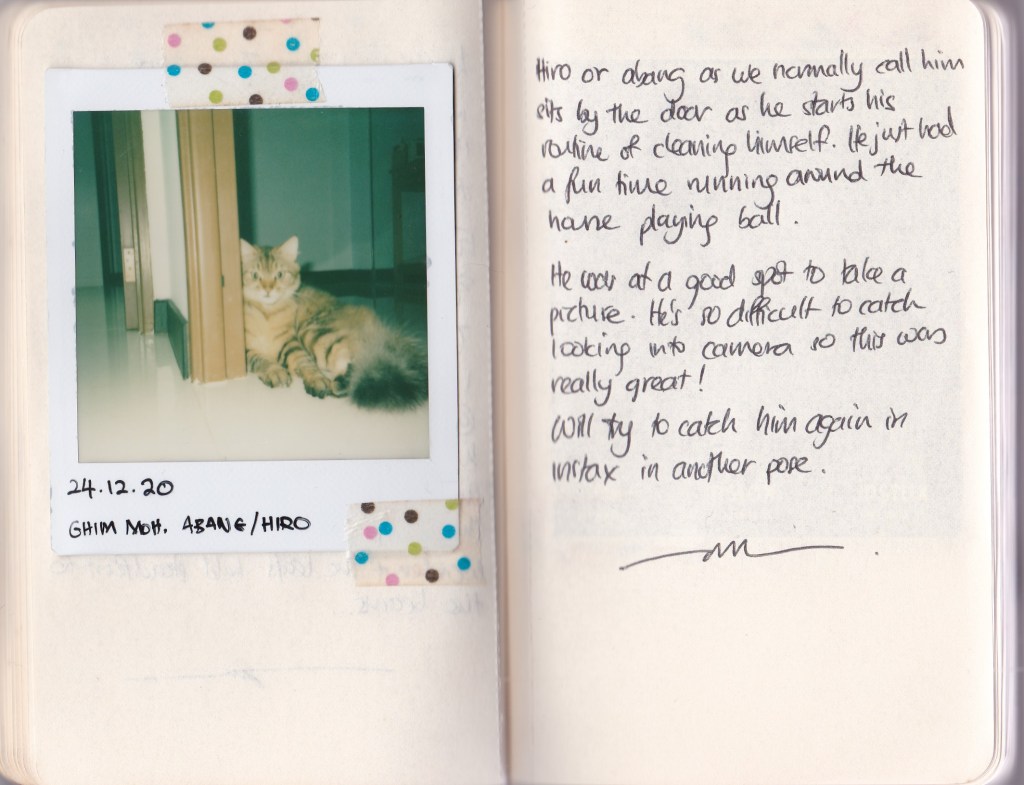 24.12.20
GHIM MOH. ABANG/HIRO
Hiro or abang as we normally call him
sits by the door as he starts his
routine of cleaning himself. He just had
a fun time running around the
house playing ball.
He was at a good spot to take a
picture. He's so difficult to catch
looking into camera so this was
really great!
Will try to catch him again in
instax in another pose.